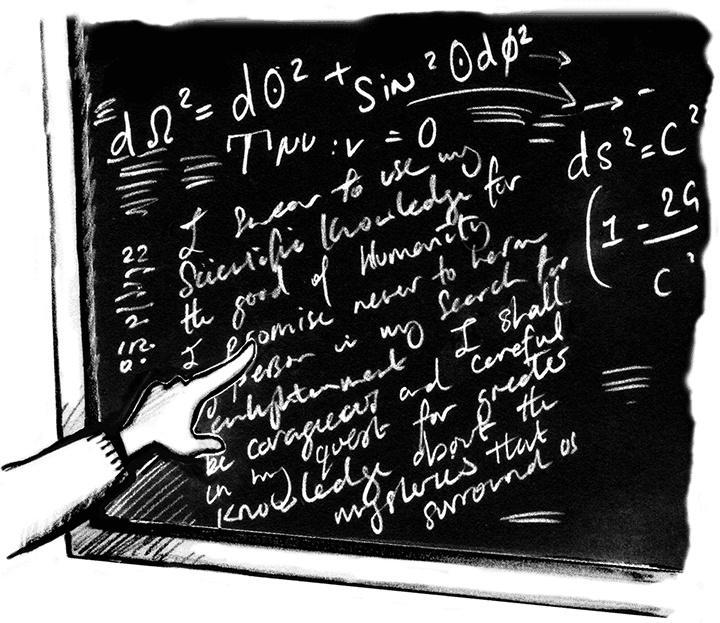 dΩ² = dθ² + sin² θdφ² →
Tμν ;ν = 0
→ -
ds² = c²
(1 - 2G
c²
I swear to use my
Scientific knowledge for
the good of Humanity
I promise never to harm
person in my search for
enlightenment I shall
be corageous and careful
in my quest for greater
knowledge about the
mysteries that
surround us